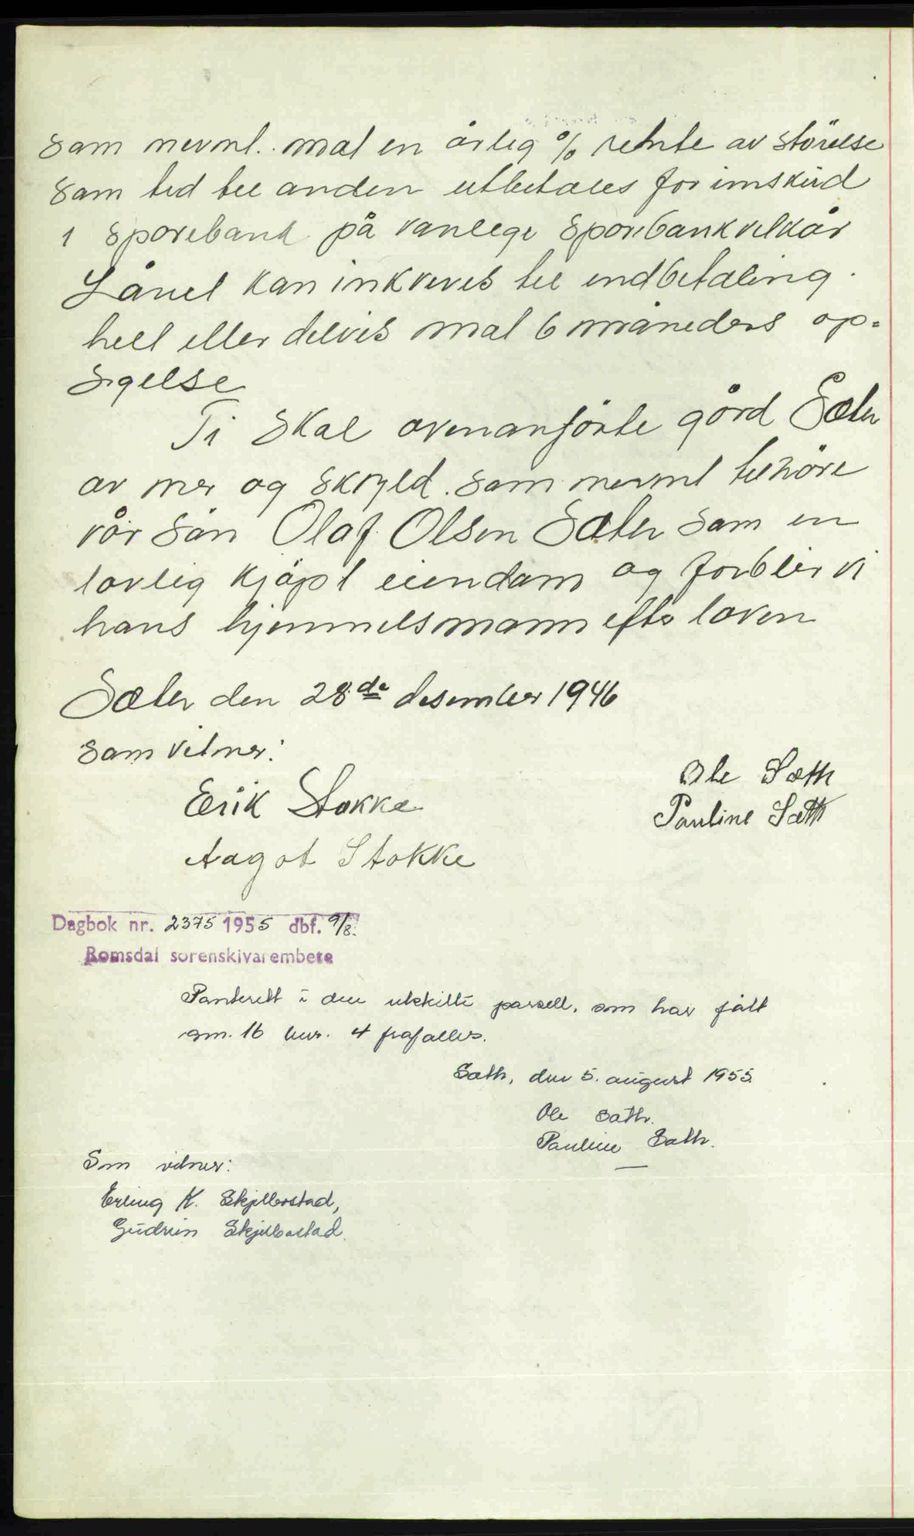 sam nevnt. mot en årleg % rente av störelse
sam tid tel anden utbetales for inskud
i Sparebank på vanlege Sparebankvilkår
Lånet kan inkreves tel indbetaling.
helt eller delvis mot 6 måneders op=
sigelse
Ti skal ovenanförte gård Sæter
av mer og skyld. sam nevnt tilhöre
vår sön Olaf Olsen Sæter sam en
lovlig kjöpt eiendam og forblir vi
hans hjemmelsmann efter loven
Sæter den 28de desember 1946
sam vitner:
Ole Sæth
Erik Stokke
Pauline Sæth
Aagot Stokke
Dagbok nr. 2375 1955 dbf. 9/8.
Romsdal sorenskrivarembete
Panterett i den utskilte parsell, som har fått
gnr. 16 bnr. 4 frafalles.
Sæth, den 5. august 1955
Ole Sæth.
Pauline Sæth.
Som vitner:
Erling K. Skjelbostad,
Gudrun Skjelbostad.